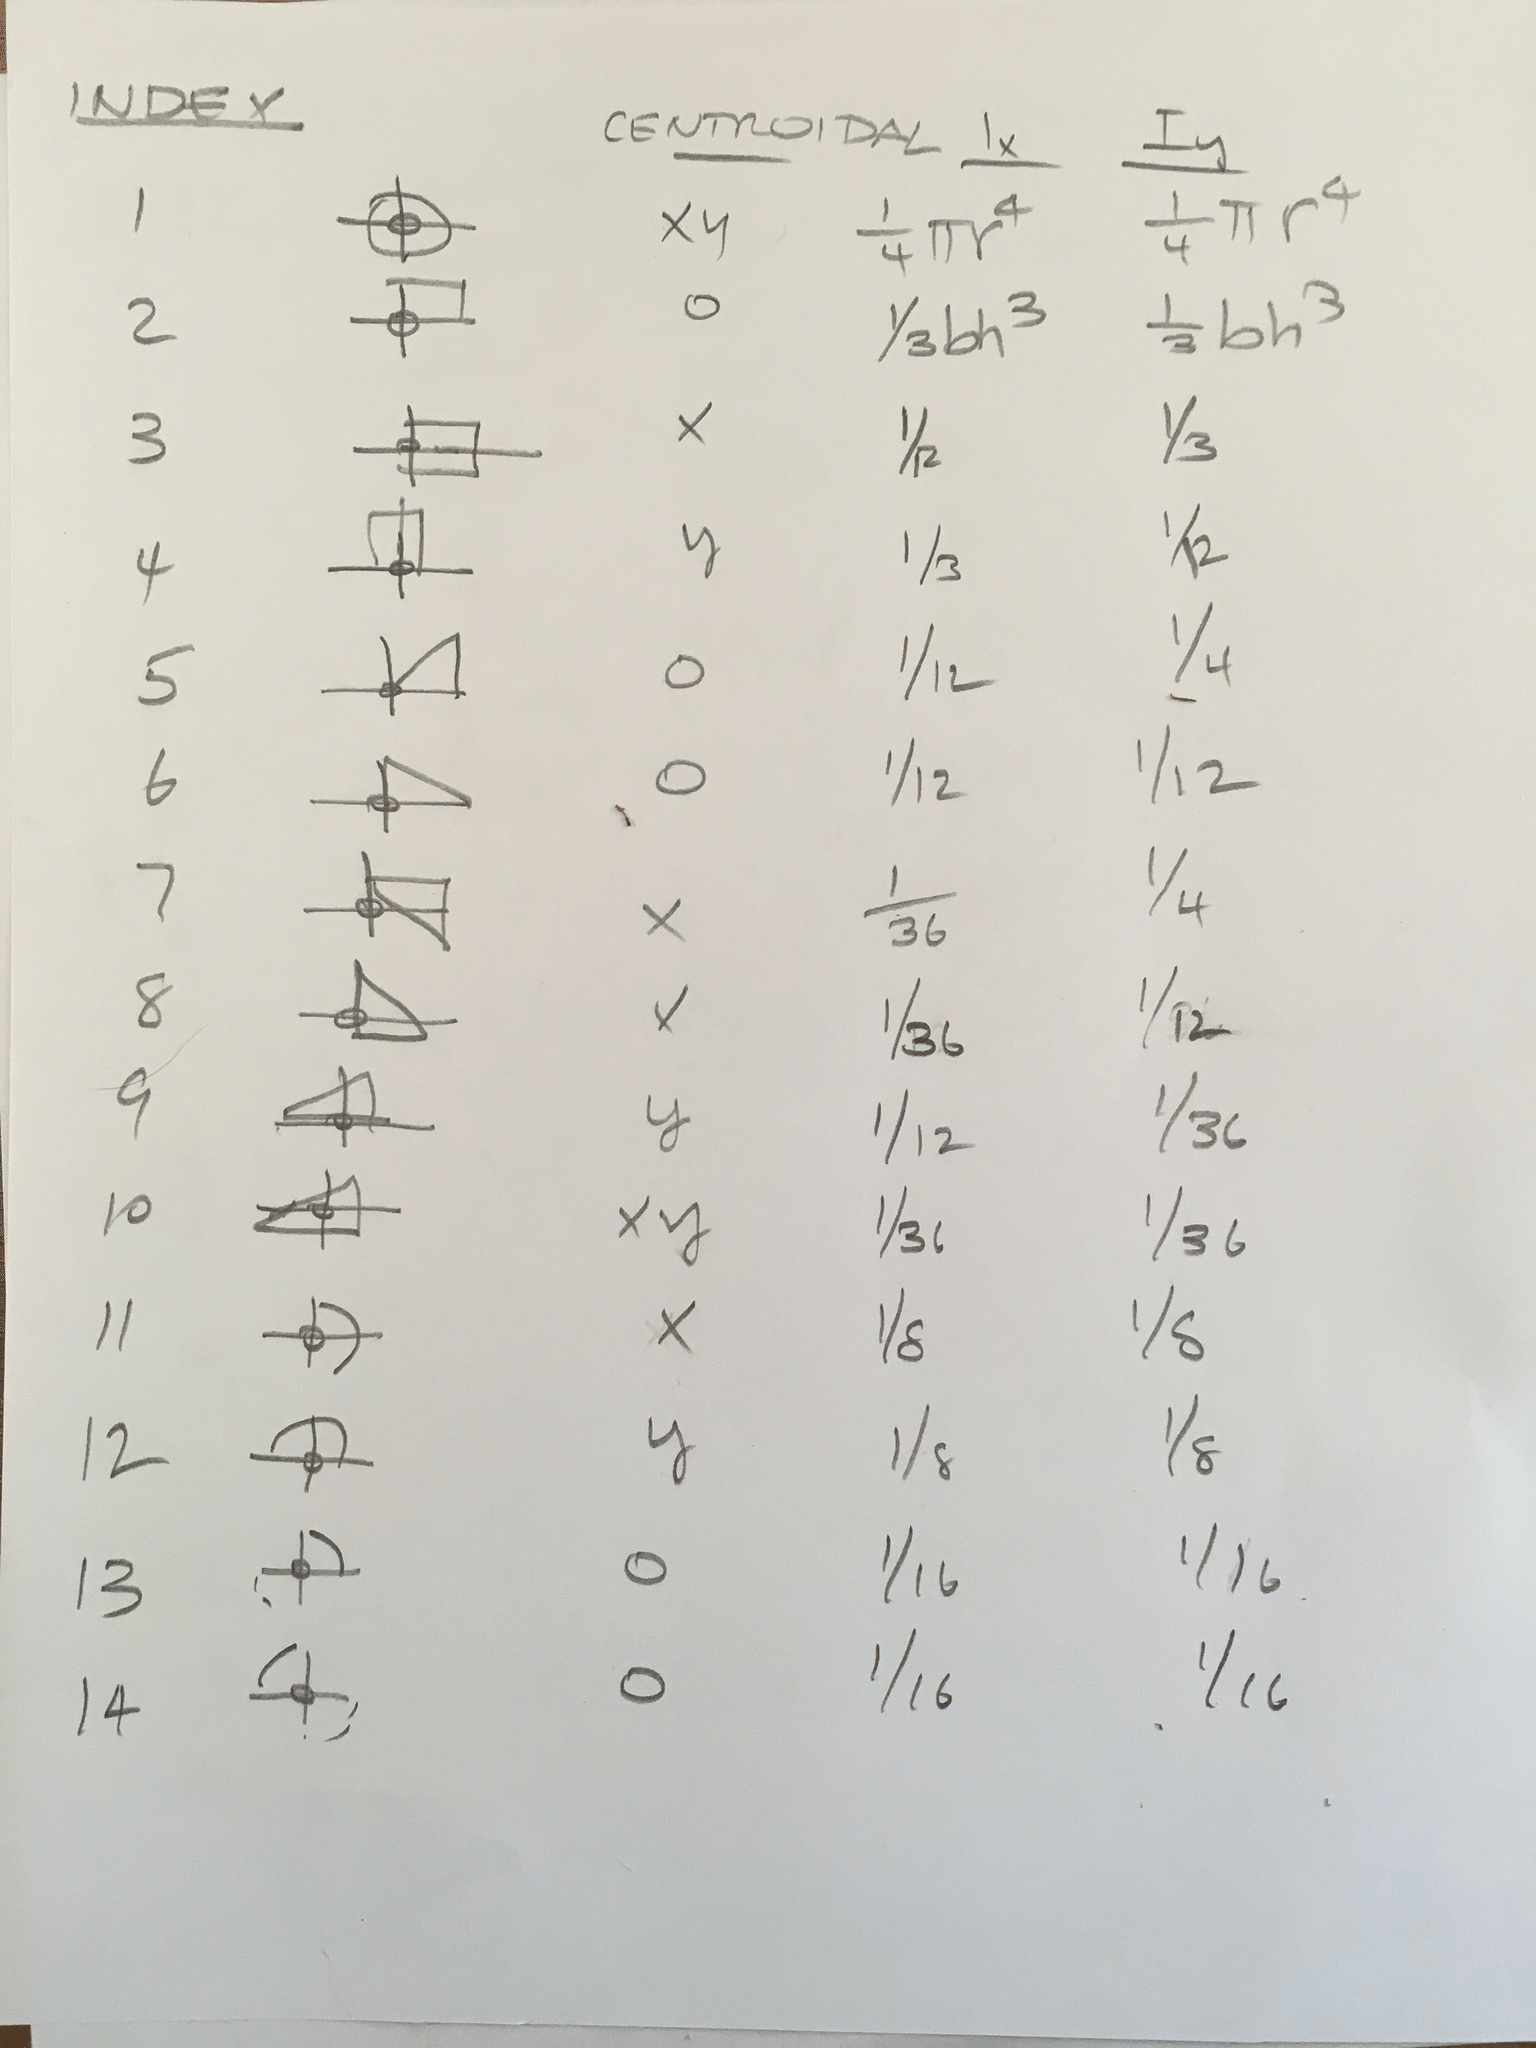 INDEX CENTROIDAL Ix Iy
1 xy 1/4 πr⁴ 1/4 πr⁴
2 0 1/3bh³ 1/3 bh³
3 x 1/12 1/3
4 y 1/3 1/12
5 0 1/12 1/4
6 0 1/12 1/12
7 x 1/36 1/4
8 x 1/36 1/12
9 y 1/12 1/36
10 xy 1/36 1/36
11 x 1/8 1/8
12 y 1/8 1/8
13 0 1/16 1/16
14 0 1/16 1/16